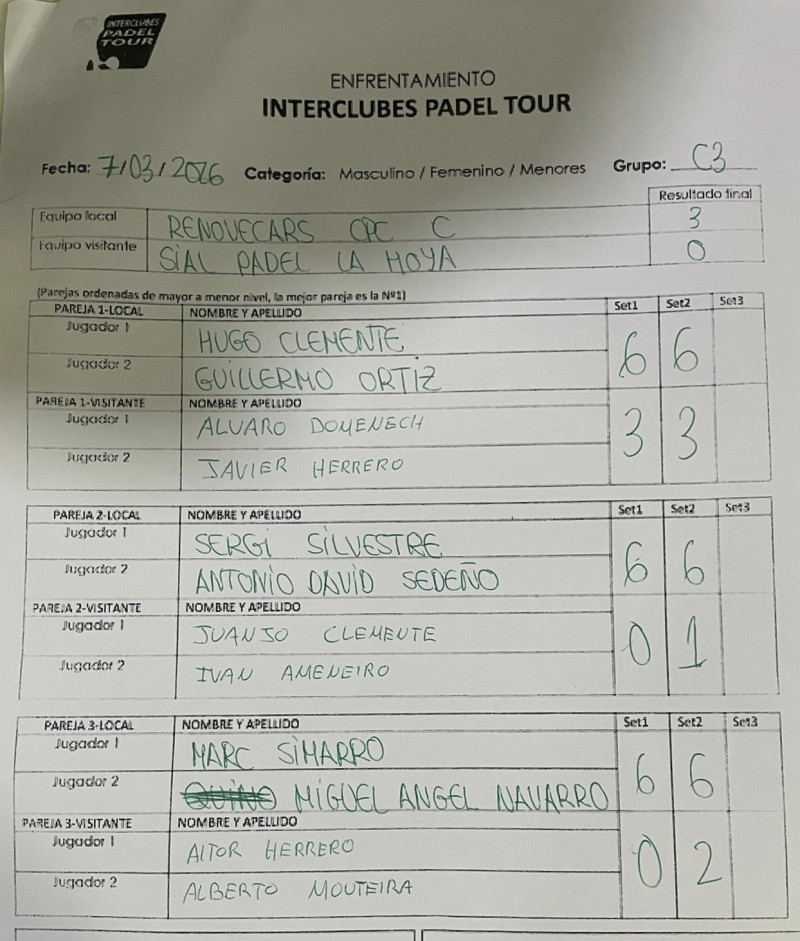 INTERCLUBES
PADEL
TOUR
ENFRENTAMIENTO
INTERCLUBES PADEL TOUR
Fecha: 7/03/2026 Categoría: Masculino / Femenino / Menores Grupo: C3
Resultado final
Equipo local RENOVECARS CPC C 3
Equipo visitante SIAL PADEL LA HOYA 0
(Parejas ordenadas de mayor a menor nivel, la mejor pareja es la Nº1)
PAREJA 1-LOCAL NOMBRE Y APELLIDO Set1 Set2 Set3
Jugador 1 HUGO CLEMENTE 6 6
Jugador 2 GUILLERMO ORTIZ
PAREJA 1-VISITANTE NOMBRE Y APELLIDO
Jugador 1 ALVARO DOMENECH 3 3
Jugador 2 JAVIER HERRERO
PAREJA 2-LOCAL NOMBRE Y APELLIDO Set1 Set2 Set3
Jugador 1 SERGI SILVESTRE 6 6
Jugador 2 ANTONIO DAVID SEDEÑO
PAREJA 2-VISITANTE NOMBRE Y APELLIDO
Jugador 1 JUANJO CLEMENTE 0 1
Jugador 2 IVAN AMENEIRO
PAREJA 3-LOCAL NOMBRE Y APELLIDO Set1 Set2 Set3
Jugador 1 MARC SIMARRO 6 6
Jugador 2 MIGUEL ANGEL NAVARRO
PAREJA 3-VISITANTE NOMBRE Y APELLIDO
Jugador 1 AITOR HERRERO 0 2
Jugador 2 ALBERTO MOUTEIRA